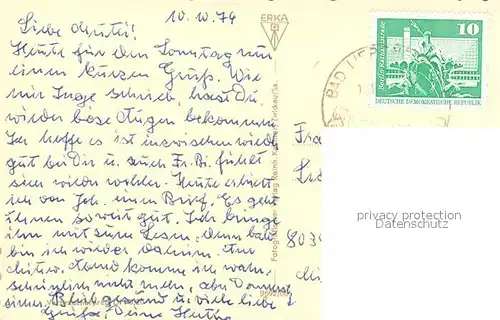 10.10.79
Liebe
Heute für den Sonntag nur
einen kurzen Gruß. Wie
mir Inge schrieb, hast Du
wieder böse Augen bekommen.
Ich hoffe es ist inzwischen wieder
gut bei Dir u. auch Fr. Bi. fühlt
sich wieder wohler. Heute erhielt
ich von Joh. einen Brief. Es geht
ihnen soweit gut. Ich bringe
ihn mit zum Lesen, denn bald
bin ich wieder daheim. Am
Abend komme ich wahr-
scheinlich nicht mehr, aber Donnerst
Bleib gesund u. viele liebe
Grüße Deine
ERKA
Bad Liebe
10
DEUTSCHE DEMOKRATISCHE REPUBLIK
Fra
803
privacy protection
Datenschutz